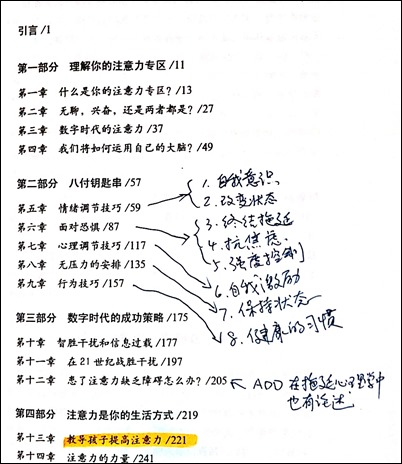 引言 /1
第一部分 理解你的注意力专区 /11
第一章 什么是你的注意力专区? /13
第二章 无聊,兴奋,还是两者都是? /27
第三章 数字时代的注意力 /37
第四章 我们将如何运用自己的大脑? /49
第二部分 八付钥匙串 /57
第五章 情绪调节技巧 /59
第六章 面对恐惧 /87
第七章 心理调节技巧 /117
第八章 无压力的安排 /135
第九章 行为技巧 /157
1. 自我意识
2. 改变状态
3. 终结拖延
4. 抗焦虑
5. 强度控制
6. 自我激励
7. 保持状态
8. 健康的习惯
第三部分 数字时代的成功策略 /175
第十章 智胜干扰和信息过载 /177
第十一章 在21世纪战胜干扰 /197
第十二章 患了注意力缺乏障碍怎么办? /205
ADD 在拖延心理学中
也有论述
第四部分 注意力是你的生活方式 /219
第十三章 教导孩子提高注意力 /221
第十四章 注意力的力量 /241